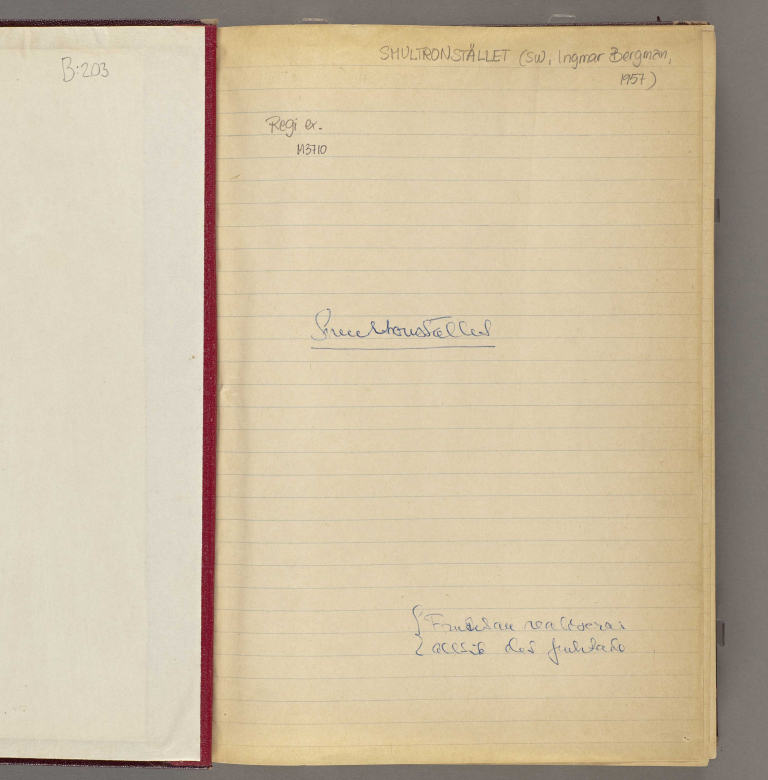 B:203
SMULTRONSTÄLLET (SW, Ingmar Bergman,
1957)
Regi ex.
M3710
Smultronstället
Fruktan realiserar
alltid det fruktade